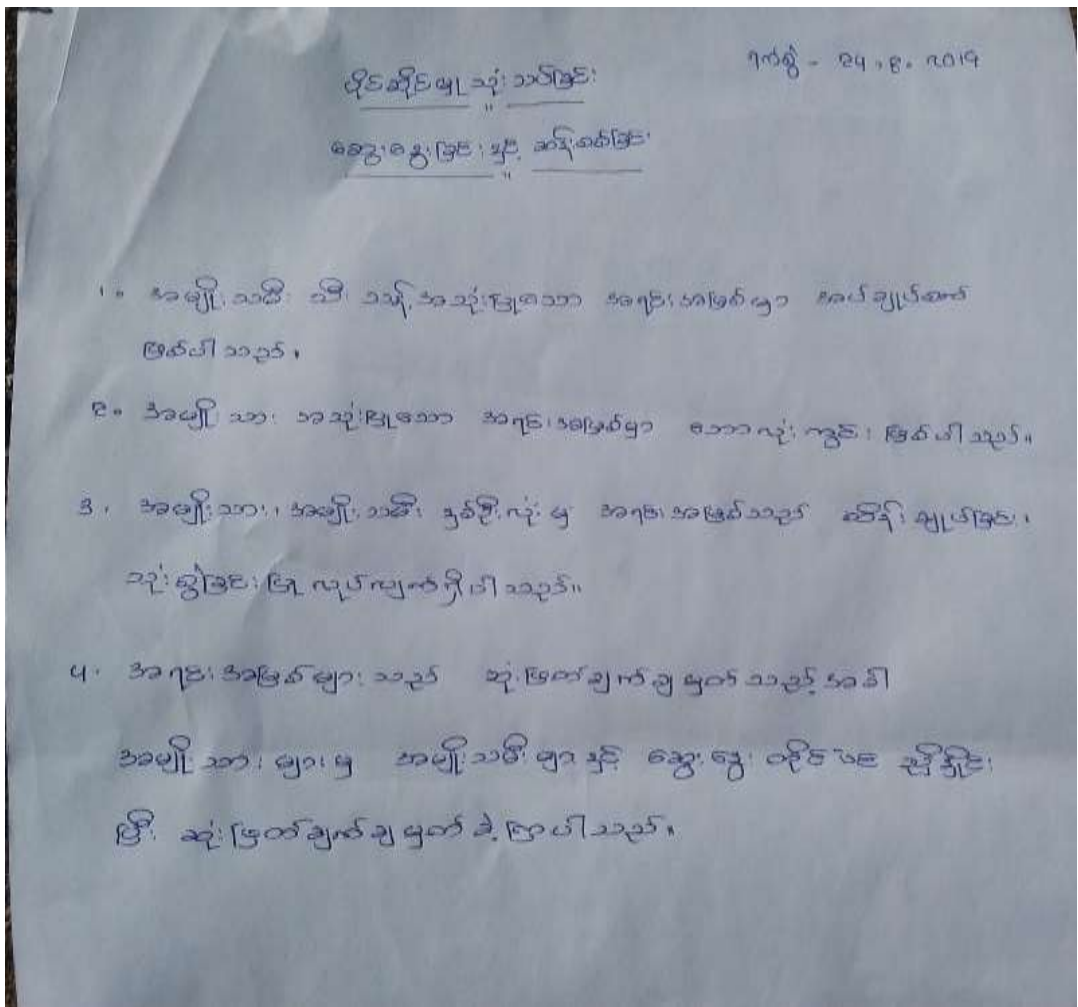 ရက်စွဲ - ၉၄.၉.၂၀၁၉
ပိုင်ဆိုင်မှု သုံးသပ်ခြင်း
ဆွေးနွေးခြင်း နှင့် ဆန်းစစ်ခြင်း
၁။ အမျိုးသမီး သီးသန့် အသုံးပြုသော အရင်းအမြစ်မှာ အပ်ချုပ်စက်
ဖြစ်ပါသည်။
၂။ အမျိုးသား အသုံးပြုသော အရင်းအမြစ်မှာ ဘောလုံးကွင်း ဖြစ်ပါသည်။
၃။ အမျိုးသား၊ အမျိုးသမီး နှစ်ဦးလုံးမှ အရင်းအမြစ်သည် ထိန်းချုပ်ခြင်း၊
သုံးစွဲခြင်း ပြုလုပ်လျက်ရှိပါသည်။
၄။ အရင်းအမြစ်များသည် ဆုံးဖြတ်ချက်ချမှတ်သည့်အခါ
အမျိုးသားများမှ အမျိုးသမီးများနှင့် ဆွေးနွေး တိုင်ပင် ညှိနှိုင်း
ပြီး ဆုံးဖြတ်ချက်ချမှတ်ခဲ့ကြပါသည်။